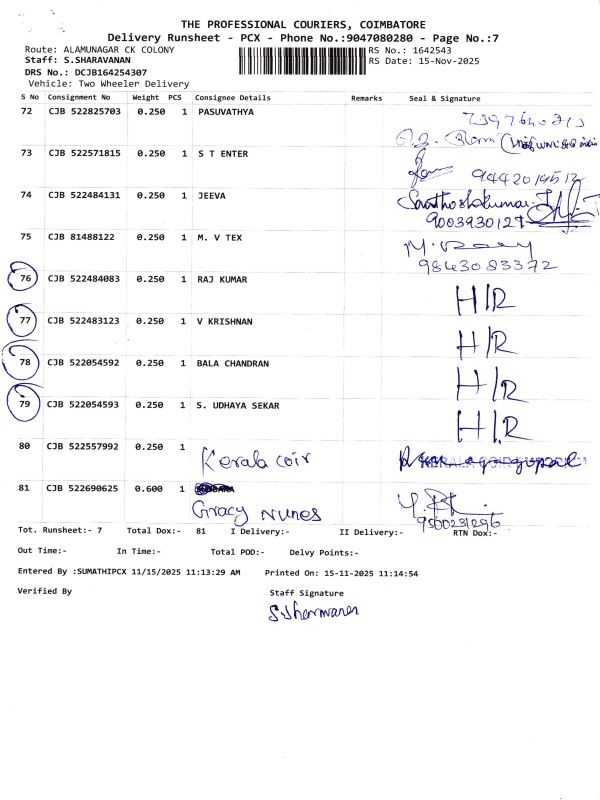 THE PROFESSIONAL COURIERS, COIMBATORE
Delivery Runsheet - PCX - Phone No.:9047080280 - Page No.:7
Route: ALAMUNAGAR CK COLONY
RS No.: 1642543
Staff: S.SHARAVANAN
RS Date: 15-Nov-2025
DRS No.: DCJB164254307
Vehicle: Two Wheeler Delivery
S No Consignment No Weight PCS Consignee Details Remarks Seal & Signature
72 CJB 522825703 0.250 1 PASUVATHYA
73 CJB 522571815 0.250 1 S T ENTER
74 CJB 522484131 0.250 1 JEEVA Santhoshkumar
9003930127
75 CJB 81488122 0.250 1 M. V TEX
9843083372
76 CJB 522484083 0.250 1 RAJ KUMAR H/R
77 CJB 522483123 0.250 1 V KRISHNAN H/R
78 CJB 522054592 0.250 1 BALA CHANDRAN H/R
79 CJB 522054593 0.250 1 S. UDHAYA SEKAR H/R
80 CJB 522557992 0.250 1 Kerala coir
81 CJB 522690625 0.600 1
Gracy Nunes
9500231296
Tot. Runsheet:- 7 Total Dox:- 81 I Delivery:- II Delivery:- RTN Dox:-
Out Time:- In Time:- Total POD:- Delvy Points:-
Entered By :SUMATHIPCX 11/15/2025 11:13:29 AM Printed On: 15-11-2025 11:14:54
Verified By Staff Signature